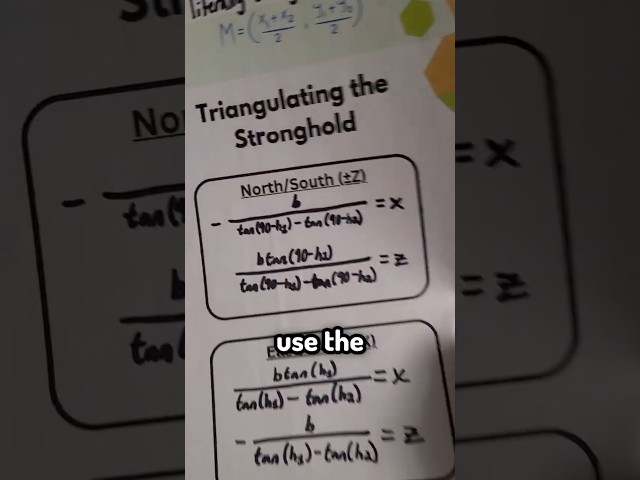 M = (x₁+x₂/2 , y₁+y₂/2)
Triangulating the
Stronghold
North/South (±Z)
- b / tan(90-h₁) - tan(90-h₂) = x
b tan(90-h₁) / tan(90-h₁) - tan(90-h₂) = z
use the
b tan(h₁) / tan(h₁) - tan(h₂) = x
- b / tan(h₁) - tan(h₂) = z